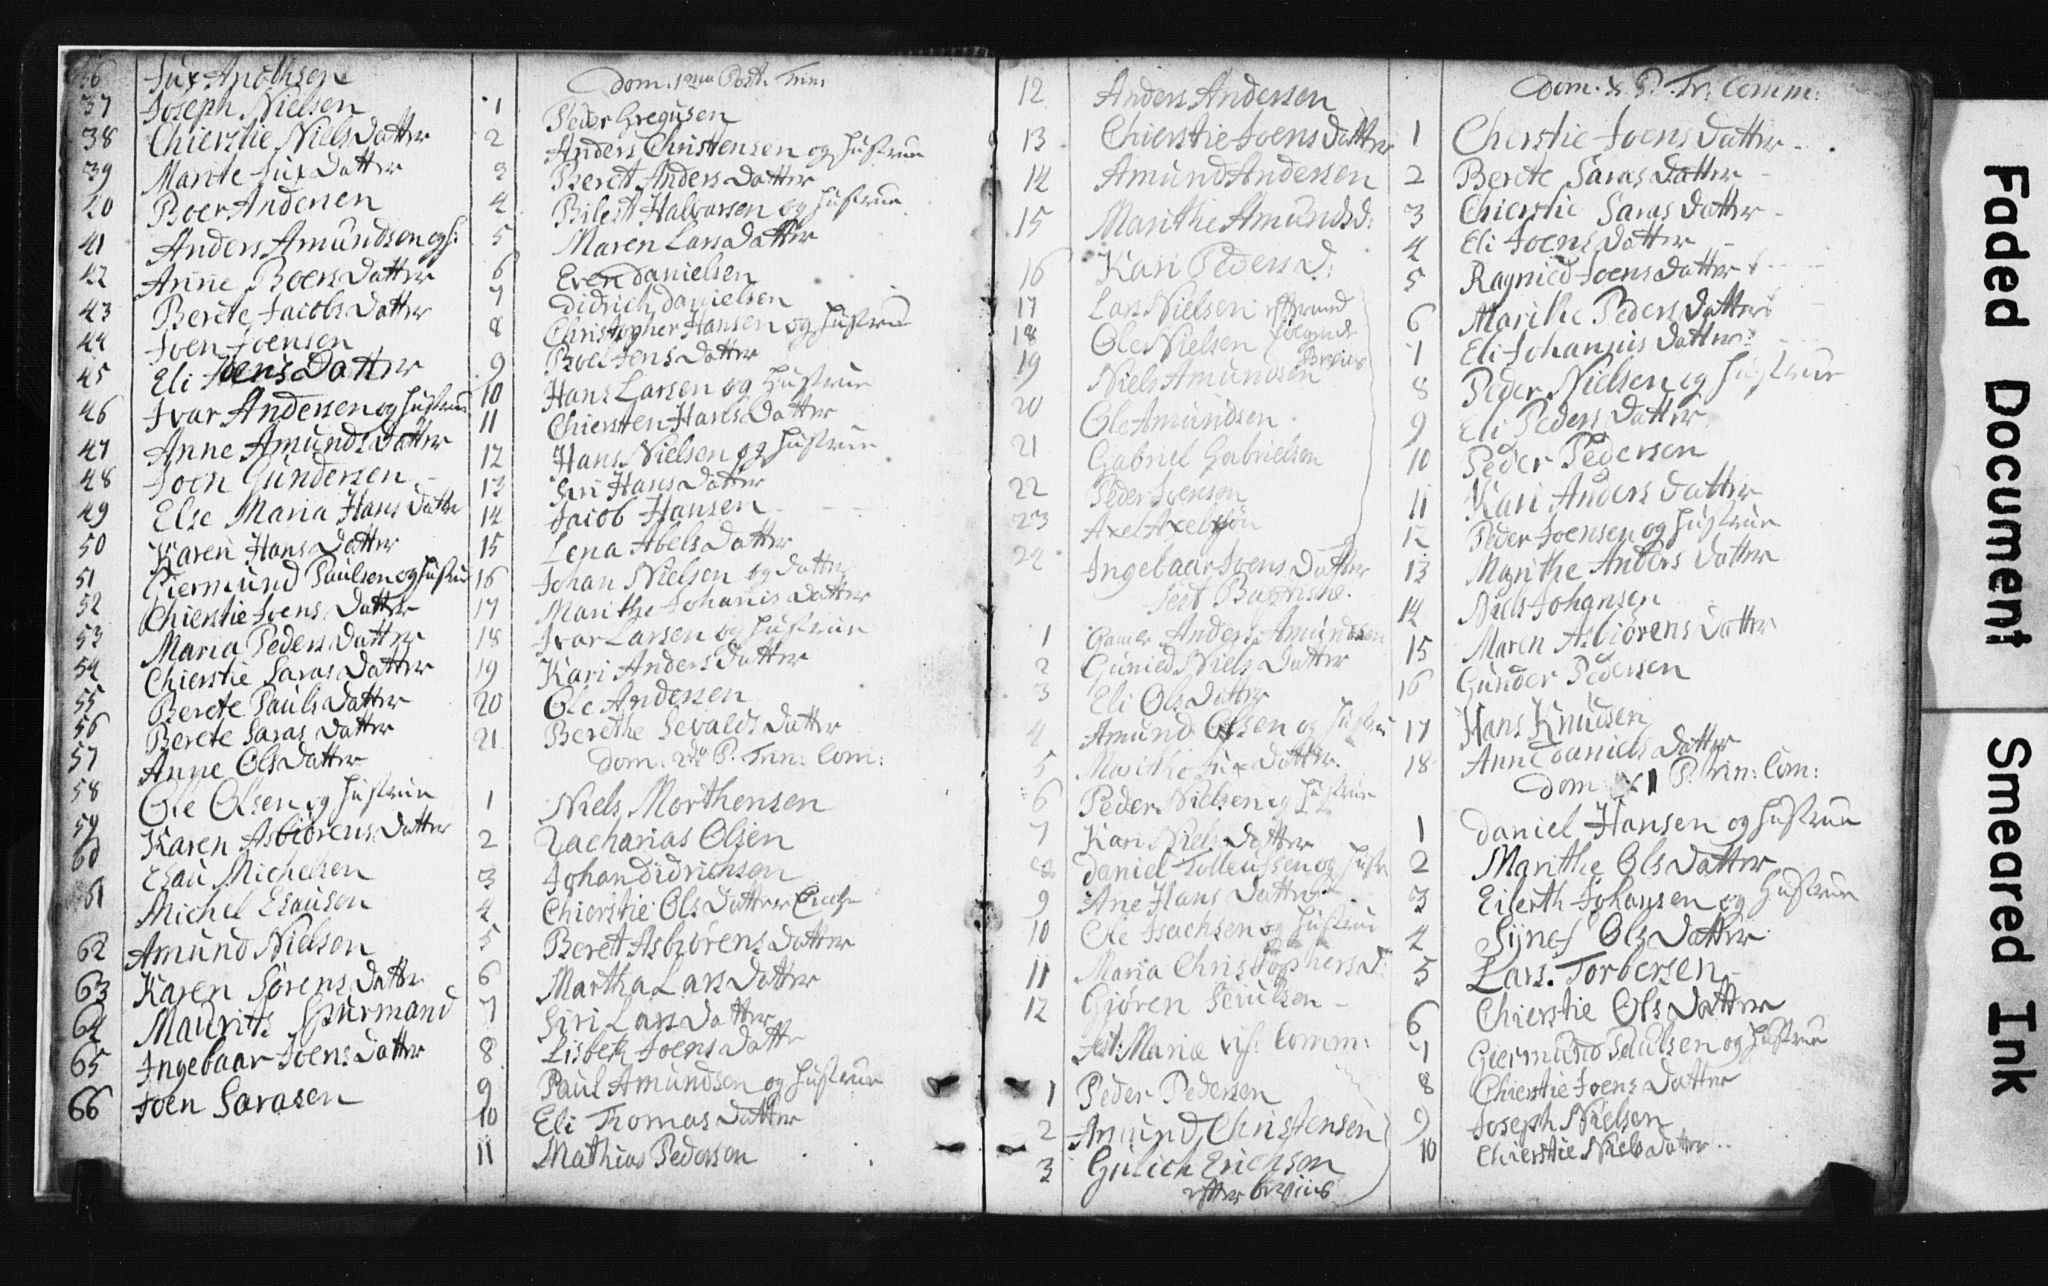 36 Jux Anothsen
37 Joseph Nielsen
38 Chierstie NielsDatter
39 Marite JuxDatter
40 Boer Andersen
41 Anders Amundsen og h:
42 Anne BoersDatter
43 Berete JacobsDatter
44 Joen Joensen
45 Eli JoensDatter
46 Ivar Andersen og Hustrue
47 Anne AmundsDatter
48 Joen Gundersen
49 Else Maria HansDatter
50 Karen HansDatter
51 Giermund Paulsen og Hustru
52 Chierstie JoensDatter
53 Maria PedersDatter
54 Chierstie SarasDatter
55 Berete PaulsDatter
56 Berete SarasDatter
57 Anne OlsDatter
58 Ole Olsen og Hustrue
59 Karen AsbiörensDatter
60 Esau Michelsen
61 Michel Esausen
62 Amund Nielsen
63 Karen SörensDatter
64 Maurits
65 Ingebaar JoensDatter
66 Joen Sarasen
Dom. 1ma Post. Trin:
1 Peder Gregusen
2 Anders Christensen og Hustrue
3 Beret AndersDatter
4 Halvorsen og Hustrue
5 Maren LarsDatter
6 Even Danielsen
7 Didrich Danielsen
8 Christopher Hansen og Hustrue
9 Boel JensDatter
10 Hans Larsen og Hustrue
11 Chiersten HansDatter
12 Hans Nielsen og Hustrue
13 Siri HansDatter
14 Jacob Hansen
15 Lena AbelsDatter
16 Johan Nielsen og Datter
17 Marithe JohannisDatter
18 Ivar Larsen og Hustrue
19 Kari AndersDatter
20 Ole Andersen
21 Berethe SevaldsDatter
Dom. 2da P. Trin: Com:
1 Niels Morthensen
2 Zacharias Olsen
3 Johan Didrichsen
4 Chierstie OlsDatter
5 Beret AsbiörensDatter
6 Martha LarsDatter
7 Siri LarsDatter
8 Lisbeth JoensDatter
9 Paul Amundsen og Hustrue
10 Eli ThomasDatter
11 Mathias Pederson
12 Anders Andersen
13 Chierstie JoensDatter
14 Amund Andersen
15 Marithe Amundsd:
16 Kari Pedersd:
17 Lars Nielsen
18 Ole Nielsen
19 Niels Amundsen
20 Ole Amundsen
21 Gabriel Gabrielsen
22 Peder Joensen
23 Axel Axelsøn
24 Ingebaar JoensDatter
1 Gamle Anders Amundsen
2 Gunied NielsDatter
3 Eli OlsDatter
4 Amund Olsen og Hustru
5 Marithe JuxDatter
6 Peder Nielsen og Hustrue
7 Kari NielsDatter
8 Daniel Tollewssen og Hustr
9 Ane HansDatter
10 Ole Isachsen og Hustrue
11 Maria Christophersd:
12 Giören
Fest: Mariæ vis: Comm:
1 Peder Pedersen
2 Amund Christensen
3 Gulich Erichson
Dom. X. P. Tr: Comm:
1 Cherstie JoensDatter
2 Berete SarasDatter
3 Chierstie SarasDatter
4 Eli JoensDatter
5 Ragnied JoensDatter
6 Marithe PedersDatter
7 Eli JohannisDatter
8 Peder Nielsen og Hustrue
9 Eli PedersDatter
10 Peder Pedersen
11 Kari AndersDatter
12 Peder Joensen og Hustrue
13 Marithe AndersDatter
14 Niels Johansen
15 Maren AsbiörensDatter
16 Gunder Pedersen
17 Hans Knudsen
18 Anne DanielsDatter
Dom XI P. Trin: Com:
1 Daniel Hansen og Hustrue
2 Marithe OlsDatter
3 Eilerth Johansen og Hustrue
4 OlsDatter
5 Lars Torbersen
6 Chierstie OlsDatter
7 Giermund Paulsen og Hustrue
8 Chierstie JoensDatter
9 Joseph Nielsen
10 Chierstie NielsDatter
Faded Document
Smeared Ink